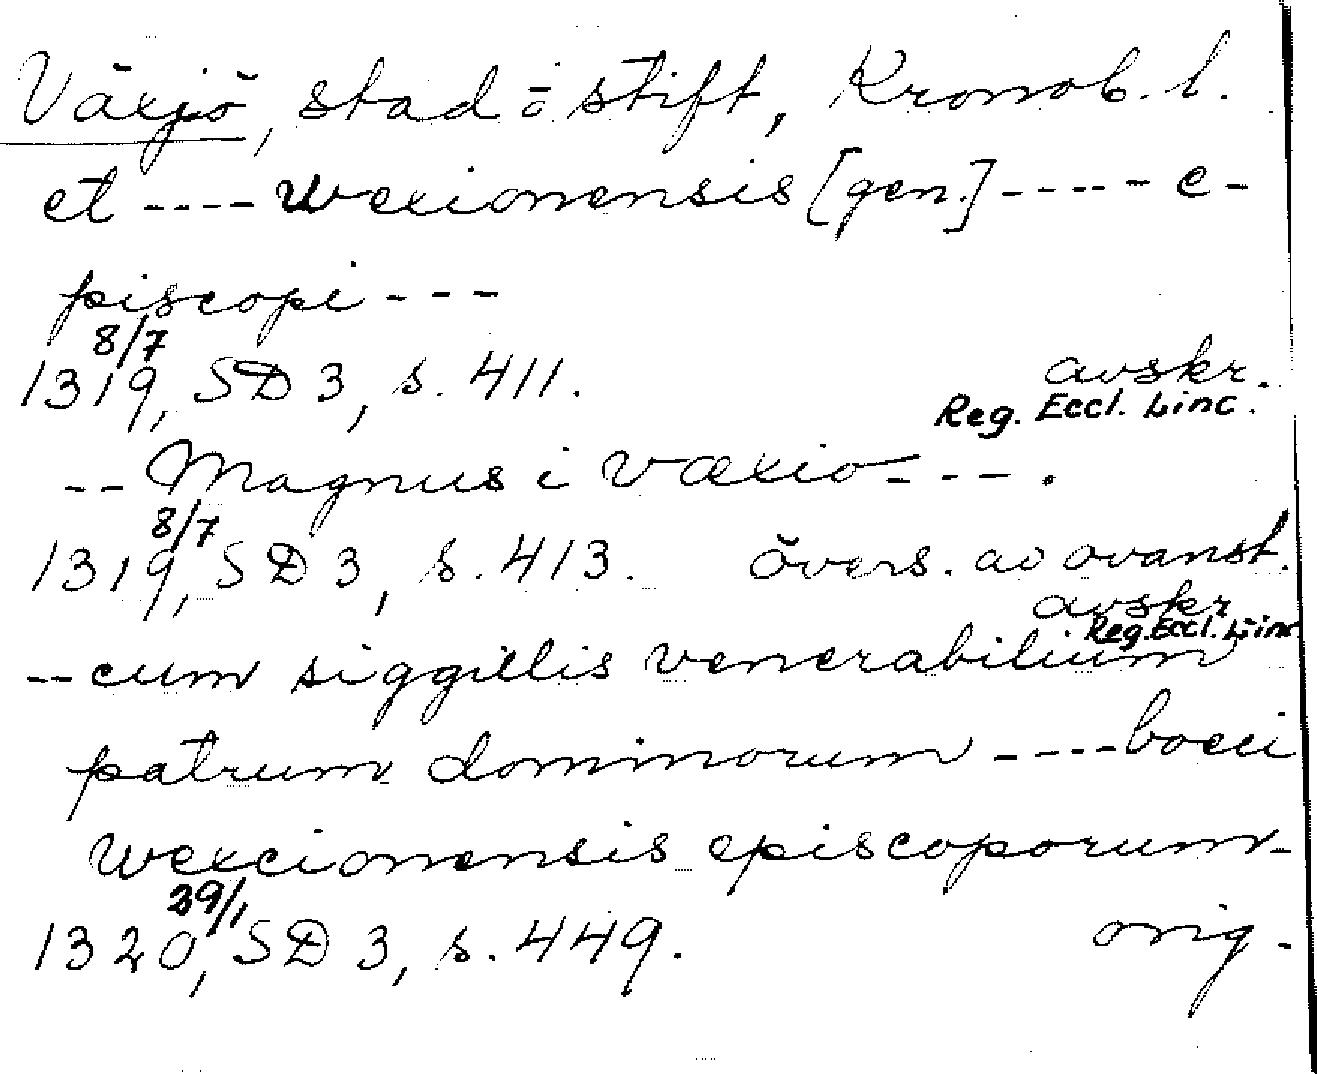 Växjö, stad o stift, Kronob. l.
et ---- wexionensis [gen.] ----- e-
piscopi ---
8/7
1319, SD 3, s. 411. avskr.
Reg. Eccl. Linc.
-- Magnus i væxio ---.
8/7
1319, SD 3, s. 413. övers. av ovanst.
avskr.
Reg. Eccl. Linc.
-- cum siggillis venerabilium
patrum dominorum ---- boeci
wexcionensis episcoporum -
29/1
1320, SD 3, s. 449. orig.